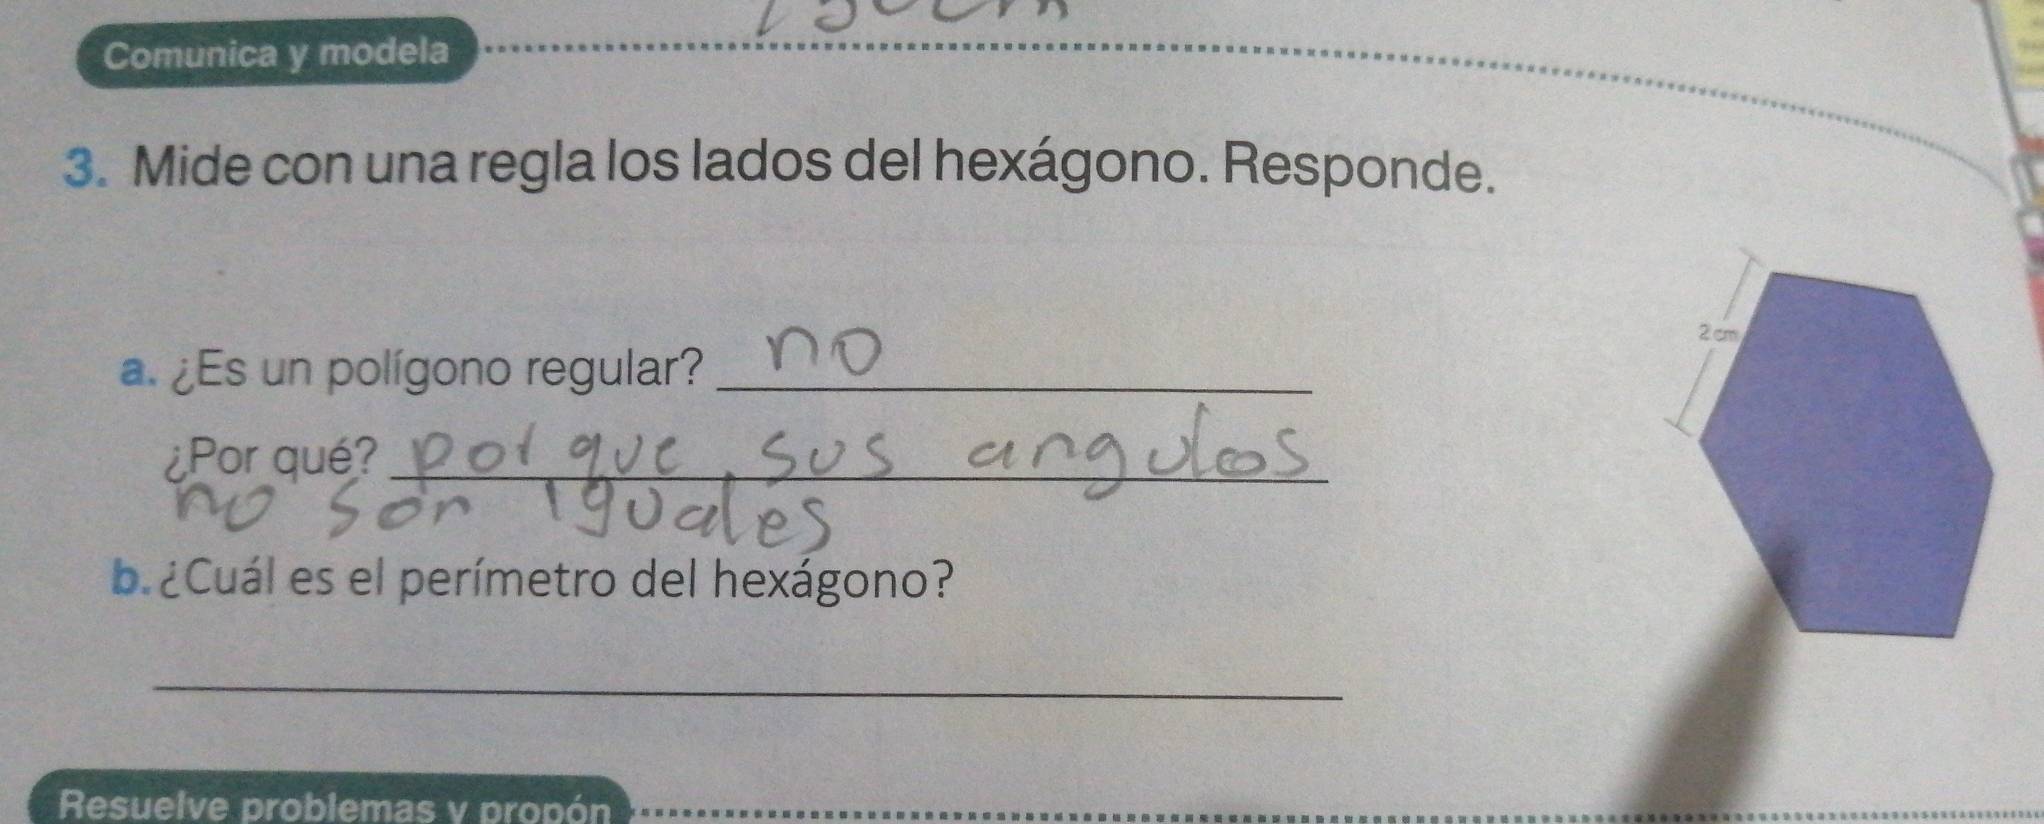 Comunica y modela
3. Mide con una regla los lados del hexágono. Responde.
2 cm
a. ¿Es un polígono regular? no
¿Por qué? por que sus angulos
no son iguales
b. ¿Cuál es el perímetro del hexágono?
Resuelve problemas y propón